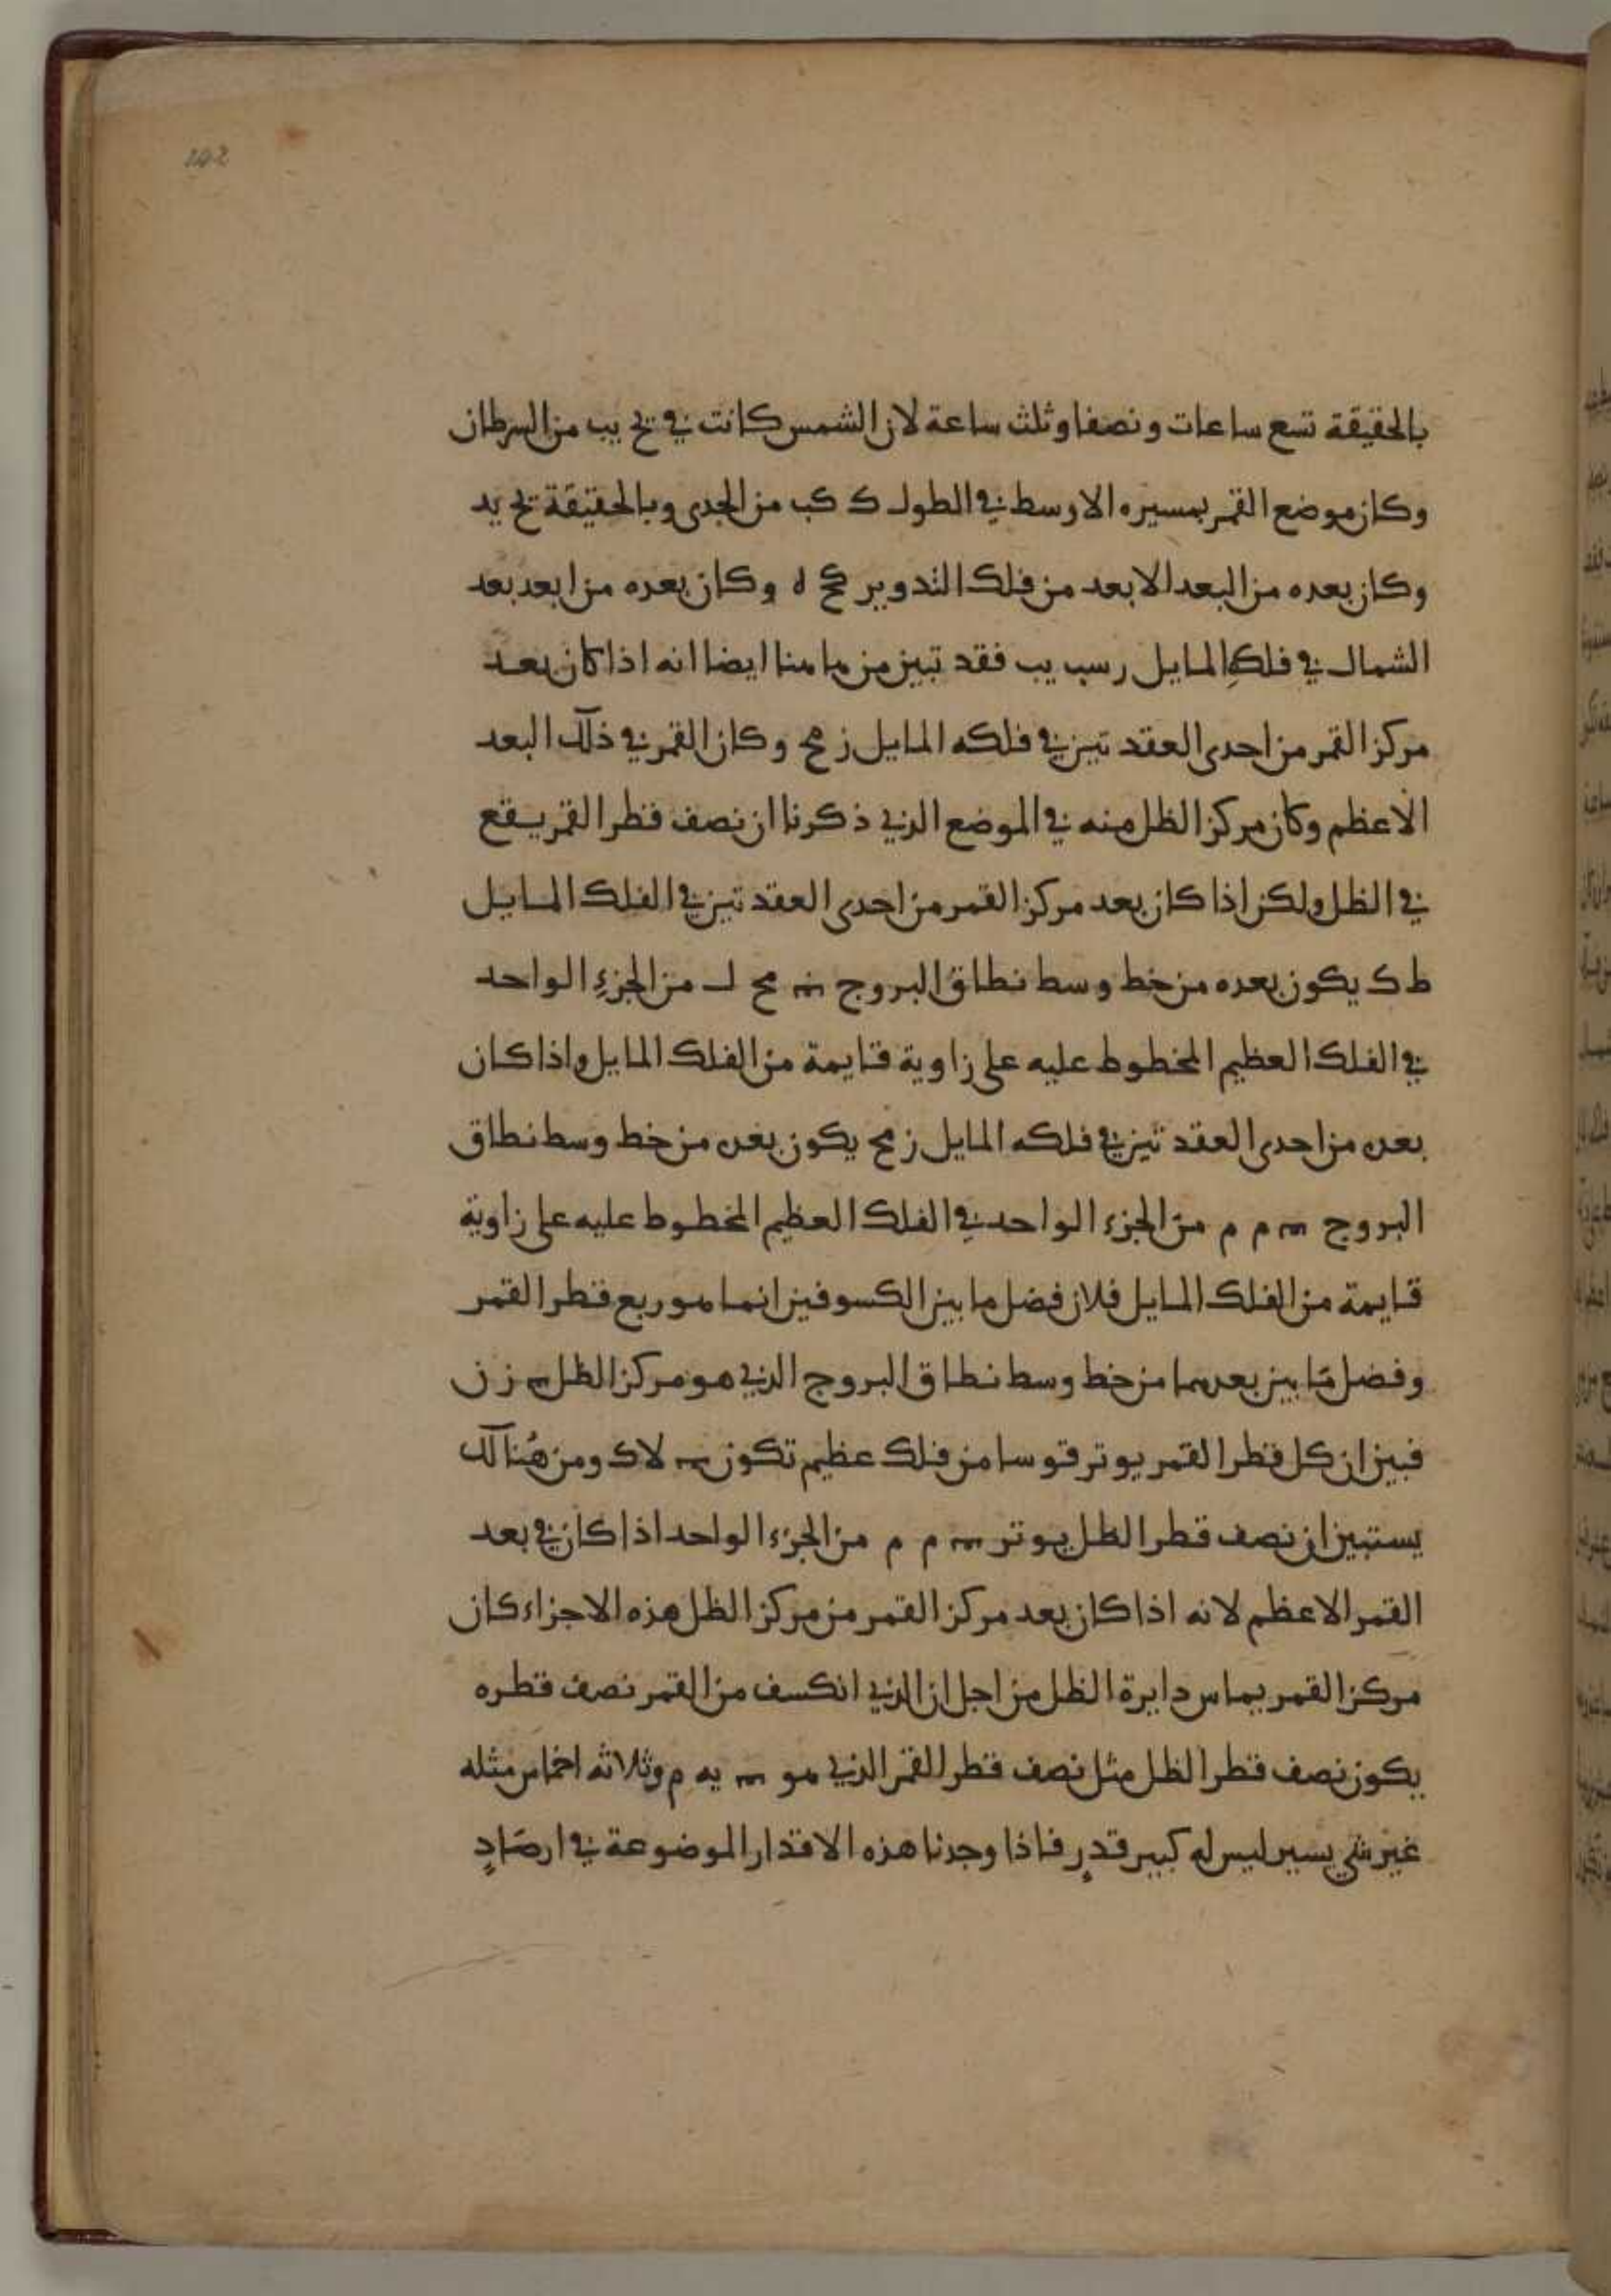 202
بالحقيقة تسع ساعات ونصفا وثلث ساعة لان الشمس كانت في يح يب من السرطان
وكان موضع القمر بمسيره الاوسط في الطول ك كب من الجدى وبالحقيقة يح يد
وكان بعده من البعد الابعد من فلك التدوير كح ه وكان بعده من ابعد بعد
الشمال في فلك المايل رسب يب فقد تبين من هاهنا ايضا انه اذا كان بعد
مركز القمر من احدى العقدتين في فلكه المايل ز مح وكان القمر في ذلك البعد
الاعظم وكان مركز الظل منه في الموضع الذي ذكرنا ان نصف قطر القمر يقع
في الظل ولكن اذا كان بعد مركز القمر من احدى العقدتين في الفلك المايل
ط ك يكون بعده من خط وسط نطاق البروج مح ل من الجزء الواحد
في الفلك العظيم المخطوط عليه على زاوية قايمة من الفلك المايل واذا كان
بعده من احدى العقدتين في فلكه المايل ز مح يكون بعده من خط وسط نطاق
البروج م م من الجزء الواحد في الفلك العظيم المخطوط عليه على زاوية
قايمة من الفلك المايل فلان فضل ما بين الكسوفين انما هو ربع قطر القمر
وفضل ما بين بعدهما من خط وسط نطاق البروج الذي هو مركز الظل ز ن
فبين ان كل قطر القمر يوتر قوسا من فلك عظيم تكون لا ك ومن هُنالك
يستبين ان نصف قطر الظل يوتر م م من الجزء الواحد اذا كان في بعد
القمر الاعظم لانه اذا كان بعد مركز القمر من مركز الظل هذه الاجزاء كان
مركز القمر يماس دايرة الظل من اجل ان الذي انكسف من القمر نصف قطره
يكون نصف قطر الظل مثل نصف قطر القمر الذي هو يه م وثلاثه اخماس مثله
غير شي يسير ليس له كبير قدرٍ فاذا وجدنا هذه الاقدار الموضوعة في ارصَادٍ